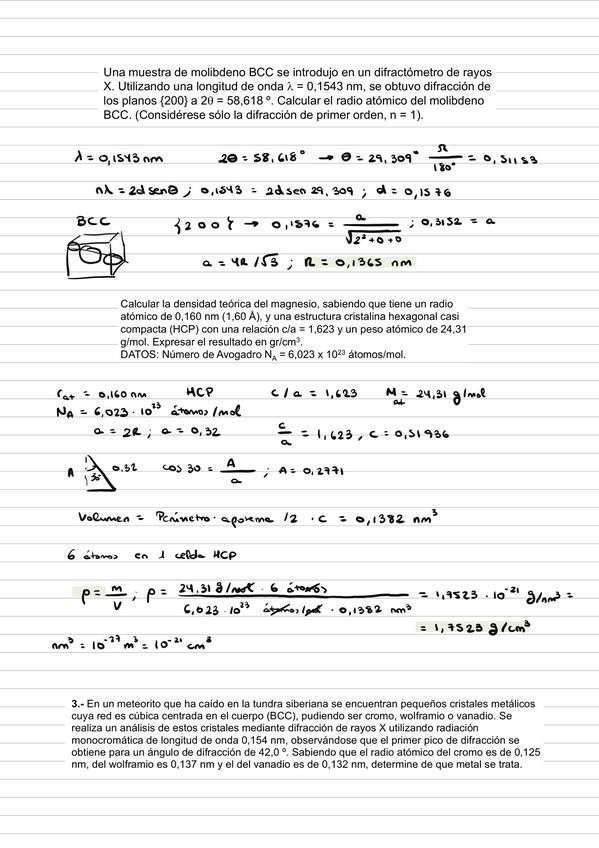 Una muestra de molibdeno BCC se introdujo en un difractómetro de rayos
X. Utilizando una longitud de onda λ = 0,1543 nm, se obtuvo difracción de
los planos {200} a 2θ = 58,618 º. Calcular el radio atómico del molibdeno
BCC. (Considérese sólo la difracción de primer orden, n = 1).
λ = 0,1543 nm 2θ = 58,618° → θ = 29,309° π/180° = 0,51153
nλ = 2d senθ ; 0,1543 = 2d sen 29,309 ; d = 0,1576
BCC {200} → 0,1576 = a/√(2²+0+0) ; 0,3152 = a
a = 4R/√3 ; R = 0,1365 nm
Calcular la densidad teórica del magnesio, sabiendo que tiene un radio
atómico de 0,160 nm (1,60 Å), y una estructura cristalina hexagonal casi
compacta (HCP) con una relación c/a = 1,623 y un peso atómico de 24,31
g/mol. Expresar el resultado en gr/cm³.
DATOS: Número de Avogadro N_A = 6,023 x 10²³ átomos/mol.
r_at = 0,160 nm HCP c/a = 1,623 M_at = 24,31 g/mol
N_A = 6,023 · 10²³ átomos/mol
a = 2R ; a = 0,32 c/a = 1,623 , c = 0,51936
A 30° 0.32 cos 30 = A/a ; A = 0,2771
Volumen = Perímetro · apotema /2 · c = 0,1382 nm³
6 átomos en 1 celda HCP
ρ = m/V ; ρ = 24,31 g/mol · 6 átomos / 6,023 · 10²³ átomos/mol · 0,1382 nm³ = 1,7523 · 10⁻²¹ g/nm³ =
= 1,7523 g/cm³
nm³ = 10⁻²⁷ m³ = 10⁻²¹ cm³
3.- En un meteorito que ha caído en la tundra siberiana se encuentran pequeños cristales metálicos
cuya red es cúbica centrada en el cuerpo (BCC), pudiendo ser cromo, wolframio o vanadio. Se
realiza un análisis de estos cristales mediante difracción de rayos X utilizando radiación
monocromática de longitud de onda 0,154 nm, observándose que el primer pico de difracción se
obtiene para un ángulo de difracción de 42,0 º. Sabiendo que el radio atómico del cromo es de 0,125
nm, del wolframio es 0,137 nm y el del vanadio es de 0,132 nm, determine de que metal se trata.